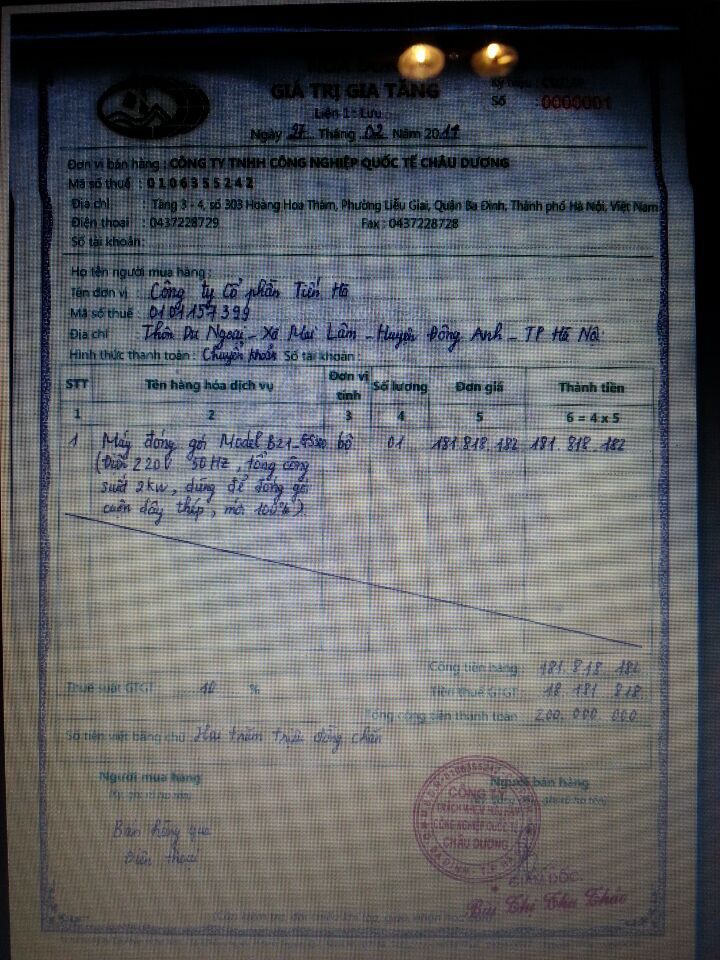 GIÁ TRỊ GIA TĂNG
Liên 1: Lưu
Số 0000001
Ngày 27 Tháng 02 Năm 2011
Đơn vị bán hàng : CÔNG TY TNHH CÔNG NGHIỆP QUỐC TẾ CHÂU DƯƠNG
Mã số thuế : 0106355242
Địa chỉ : Tầng 3 - 4, số 303 Hoàng Hoa Thám, Phường Liễu Giai, Quận Ba Đình, Thành phố Hà Nội, Việt Nam
Điện thoại : 0437228729 Fax : 0437228728
Số tài khoản:
Họ tên người mua hàng :
Tên đơn vị : Công ty Cổ phần Tiến Hà
Mã số thuế : 0101157399
Địa chỉ Thôn Du Ngoại - Xã Mai Lâm - Huyện Đông Anh - TP Hà Nội
Hình thức thanh toán : Chuyển khoản Số tài khoản :
STT Tên hàng hóa dịch vụ Đơn vị tính Số lượng Đơn giá Thành tiền
1 2 3 4 5 6 = 4 x 5
1 Máy đóng gói Model B21 bộ 01 181.818.182 181.818.182
(Điện 220V 50Hz, tổng công
suất 2kw, dùng để đóng gói
cuộn dây thép, mới 100%)
Cộng tiền hàng : 181.818.182
Thuế suất GTGT 10 % Tiền thuế GTGT : 18.181.818
Tổng cộng tiền thanh toán 200.000.000
Số tiền viết bằng chữ Hai trăm triệu đồng chẵn
Người mua hàng Người bán hàng
Bán hàng qua
Điện thoại
CÔNG TY
TRÁCH NHIỆM HỮU HẠN
CÔNG NGHIỆP QUỐC TẾ
CHÂU DƯƠNG
GIÁM ĐỐC
Bùi Thị Thu Thảo